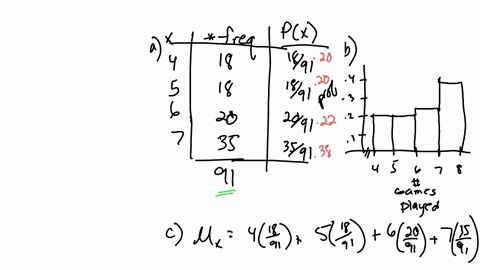 a) x * freq P(x)
4 18 18/91 .20
5 18 18/91 .20
6 20 20/91 .22
7 35 35/91 .38
91
b)
prob
.4
.3
.2
.1
4 5 6 7 8
#
Games
Played
c) μx = 4(18/91) + 5(18/91) + 6(20/91) + 7(35/91)